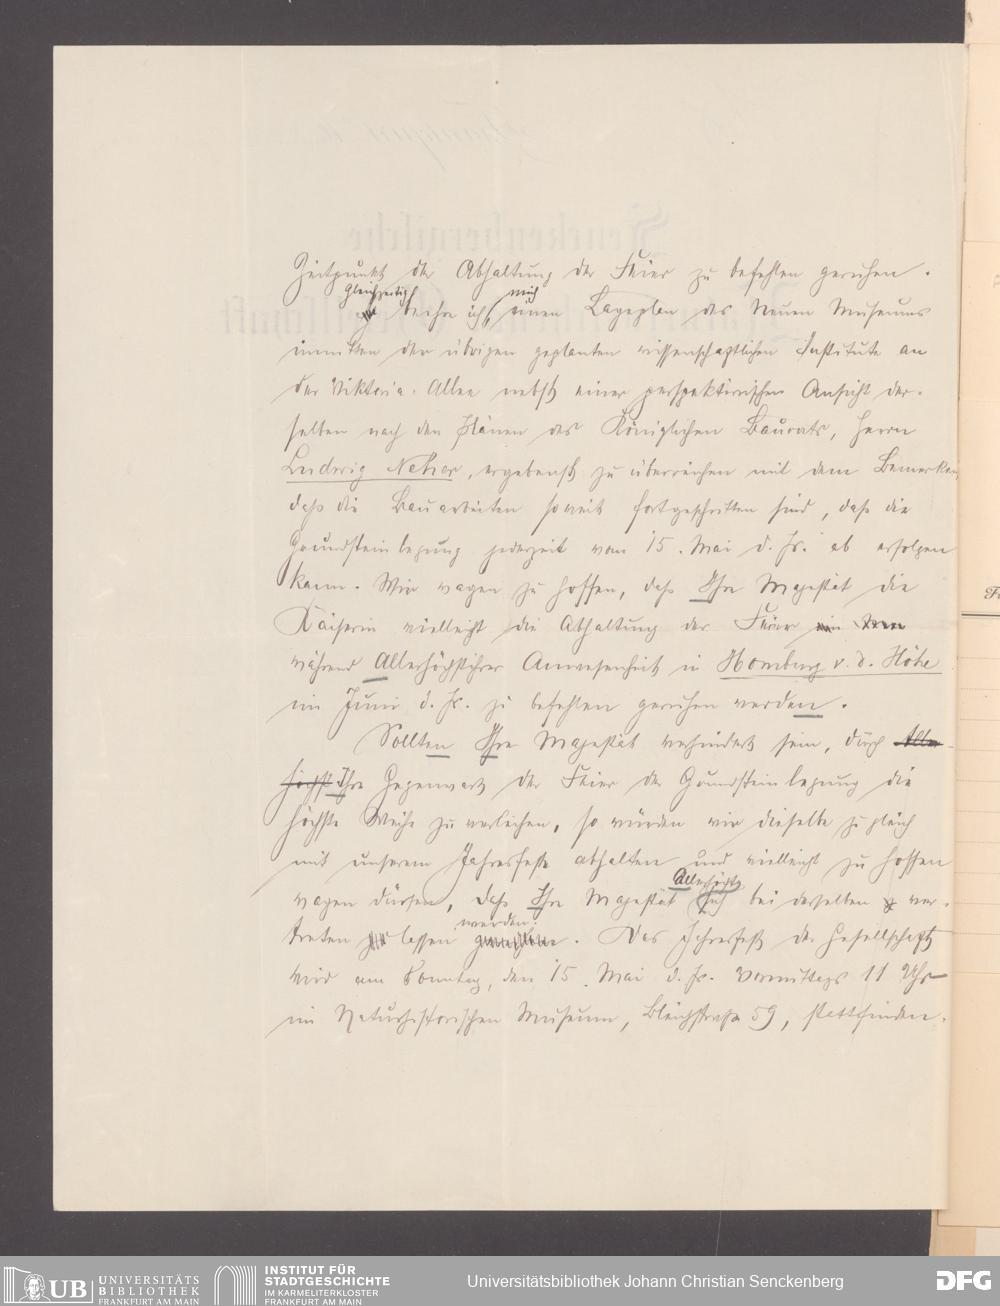 Zeitpunkt der Abhaltung der Feier zu befehlen geruhen.
Gleichzeitig beehre ich mich, einen Lageplan des Neuen Museums
inmitten der übrigen geplanten wissenschaftlichen Institute an
der Viktoria-Allee nebst einer perspektivischen Ansicht der-
selben nach den Plänen des Königlichen Baurats, Herrn
Ludwig Neher, ergebenst zu überreichen mit dem Bemerken,
daß die Bauarbeiten soweit fortgeschritten sind, daß die
Grundsteinlegung jederzeit vom 15. Mai d. Js. ab erfolgen
kann. Wir wagen zu hoffen, daß Ihre Majestät die
Kaiserin vielleicht die Abhaltung der Feier
während Allerhöchstihrer Anwesenheit in Homburg v. d. Höhe
im Juni d. Js. zu befehlen geruhen werden.
Sollten Ihre Majestät verhindert sein, durch Aller-
höchst Ihre Gegenwart der Feier der Grundsteinlegung die
höchste Weihe zu verleihen, so würden wir dieselbe zugleich
mit unserem Jahresfeste abhalten und vielleicht zu hoffen
wagen dürfen, daß Ihre Majestät Allerhöchst sich bei derselben ver-
treten lassen werden. Das Jahresfest der Gesellschaft
wird am Sonntag, den 15. Mai d. Js. Vormittags 11 Uhr
im Naturhistorischen Museum, Bleichstraße 59, stattfinden.
UB UNIVERSITÄTS
BIBLIOTHEK
FRANKFURT AM MAIN
INSTITUT FÜR
STADTGESCHICHTE
IM KARMELITERKLOSTER
FRANKFURT AM MAIN
Universitätsbibliothek Johann Christian Senckenberg
DFG